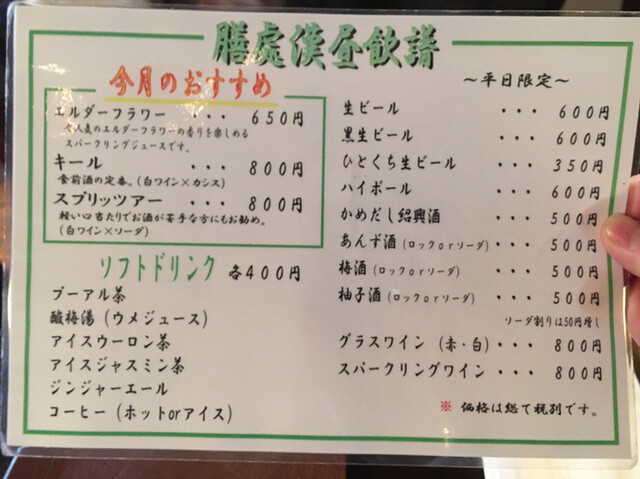 膳處漢昼飲譜
今月のおすすめ
エルダーフラワー ・・・ 650円
大人気のエルダーフラワーの香りを楽しめる
スパークリングジュースです。
キール ・・・ 800円
食前酒の定番。(白ワイン×カシス)
スプリッツアー ・・・ 800円
軽い口当たりでお酒が苦手な方にもお勧め。
(白ワイン×ソーダ)
ソフトドリンク 各400円
プーアル茶
酸梅湯(ウメジュース)
アイスウーロン茶
アイスジャスミン茶
ジンジャーエール
コーヒー(ホットorアイス)
～平日限定～
生ビール ・・・ 600円
黒生ビール ・・・ 600円
ひとくち生ビール ・・・ 350円
ハイボール ・・・ 600円
かめだし紹興酒 ・・・ 500円
あんず酒(ロックorソーダ) ・・・ 500円
梅酒(ロックorソーダ) ・・・ 500円
柚子酒(ロックorソーダ) ・・・ 500円
ソーダ割りは50円増し
グラスワイン(赤・白)・・・ 800円
スパークリングワイン・・・ 800円
※ 価格は総て税別です。